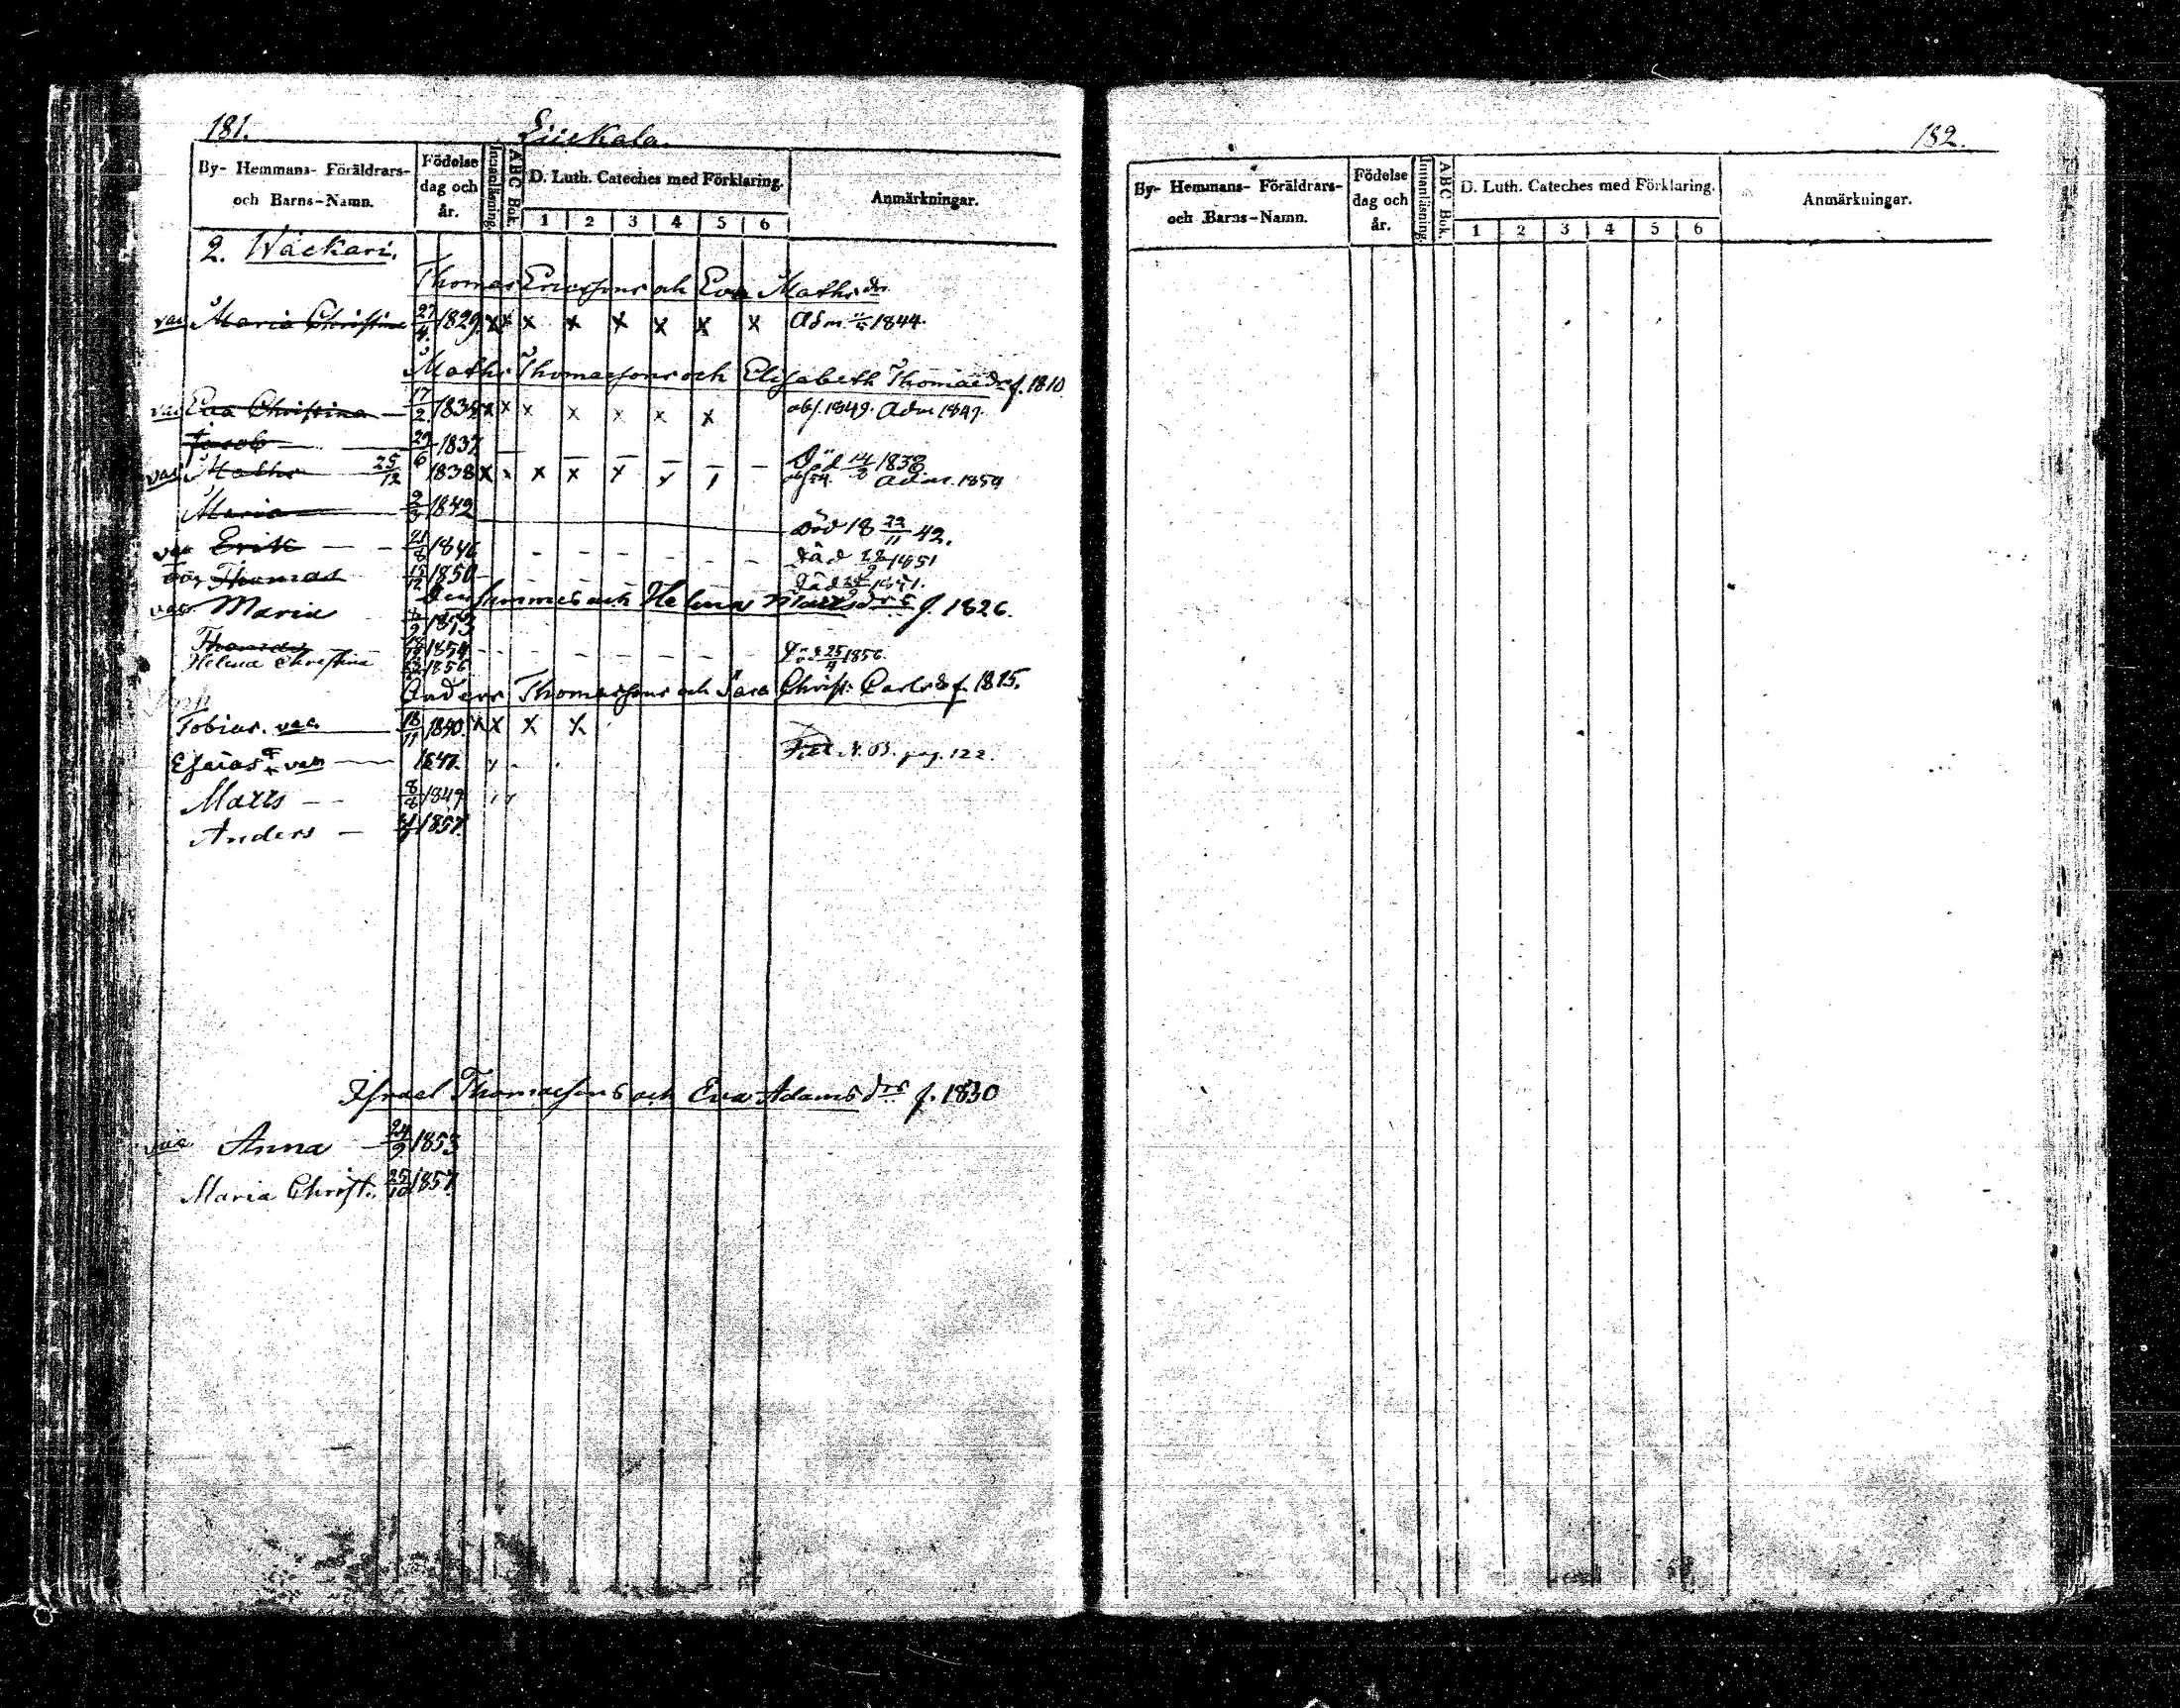 181.
Liickala.
By- Hemmans- Föräldrars- och Barns-Namn.
Födelse dag och år.
Innanläsning.
ABC Bok.
D. Luth. Cateches med Förklaring.
1 2 3 4 5 6
Anmärkningar.
2. Wäckari.
Thomas Ericssons och Eva Mathsdr
vac Maria Christina 27/4 1829 x x x x x x x x Adm 1844.
Maths Thomassons och Elisabeth Thomaedr f. 1810
vac Eva Christina 17/2 x x x x x x x abs. 1849. Adm 1849.
Jacob 29/6 1837 Död 14/8 1838.
vac Maths 25/12 1838 x x x x x x Adm. 1854
Maria 1842 Död 18 22/11 42.
vac Erik 21/8 1846 Död 1851
Thomas 15/12 1850 Död
Densammes och Helena Mattsdrs f. 1826.
vac Maria 1853
Thomas 1854 Död 25/4 1856.
Helena Christina 1856
Anders Thomassons och Sara Christ. Carlsd f. 1815.
Tobias. vac. 18/11 1840. x x x x
Esaias vac 1847. N.B. pag. 122.
Matts 8/8 1849
Anders 1857.
Israel Thomassons och Eva Adamsdrs f. 1830
vac Anna 24/9 1853
Maria Christ. 25/10 1857.
182.
By- Hemmans- Föräldrars- och Barns-Namn.
Födelse dag och år.
Innanläsning.
ABC Bok.
D. Luth. Cateches med Förklaring.
1 2 3 4 5 6
Anmärkningar.